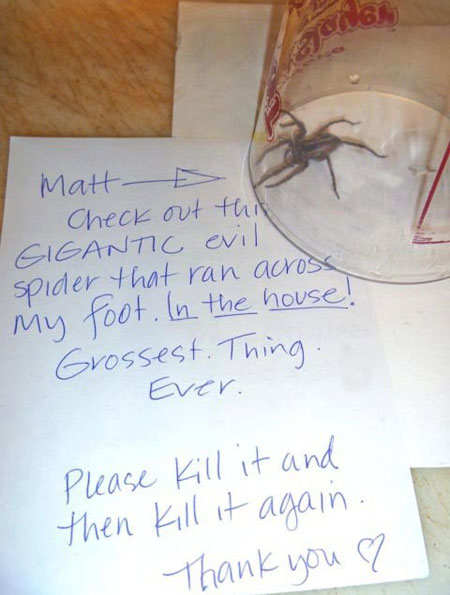 Matt
Check out this
GIGANTIC evil
spider that ran across
My foot. In the house!
Grossest. Thing.
Ever.
Please kill it and
then kill it again.
Thank you ♡